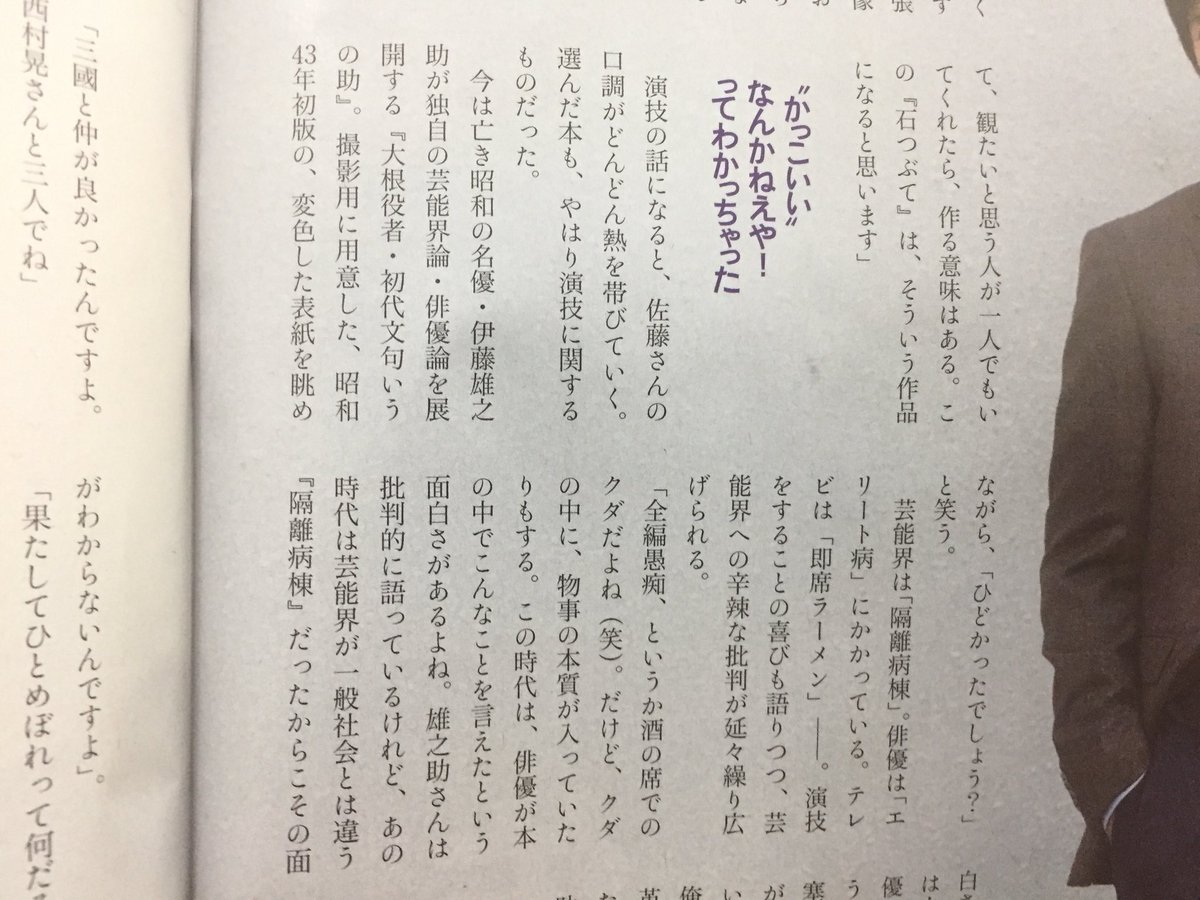 て、観たいと思う人が一人でもい
てくれたら、作る意味はある。こ
の『石つぶて』は、そういう作品
になると思います」
〝かっこいい〟
なんかねえや!
ってわかっちゃった
演技の話になると、佐藤さんの
口調がどんどん熱を帯びていく。
選んだ本も、やはり演技に関する
ものだった。
今は亡き昭和の名優・伊藤雄之
助が独自の芸能界論・俳優論を展
開する『大根役者・初代文句いう
の助』。撮影用に用意した、昭和
43年初版の、変色した表紙を眺め
ながら、「ひどかったでしょう?」
と笑う。
芸能界は「隔離病棟」。俳優は「エ
リート病」にかかっている。テレ
ビは「即席ラーメン」――。演技
をすることの喜びも語りつつ、芸
能界への辛辣な批判が延々繰り広
げられる。
「全編愚痴、というか酒の席での
クダだよね(笑)。だけど、クダ
の中に、物事の本質が入っていた
りもする。この時代は、俳優が本
の中でこんなことを言えたという
面白さがあるよね。雄之助さんは
批判的に語っているけれど、あの
時代は芸能界が一般社会とは違う
『隔離病棟』だったからこその面
「三國と仲が良かったんですよ。
西村晃さんと三人でね」
がわからないんですよ」。
「果たしてひとめぼれって何だ